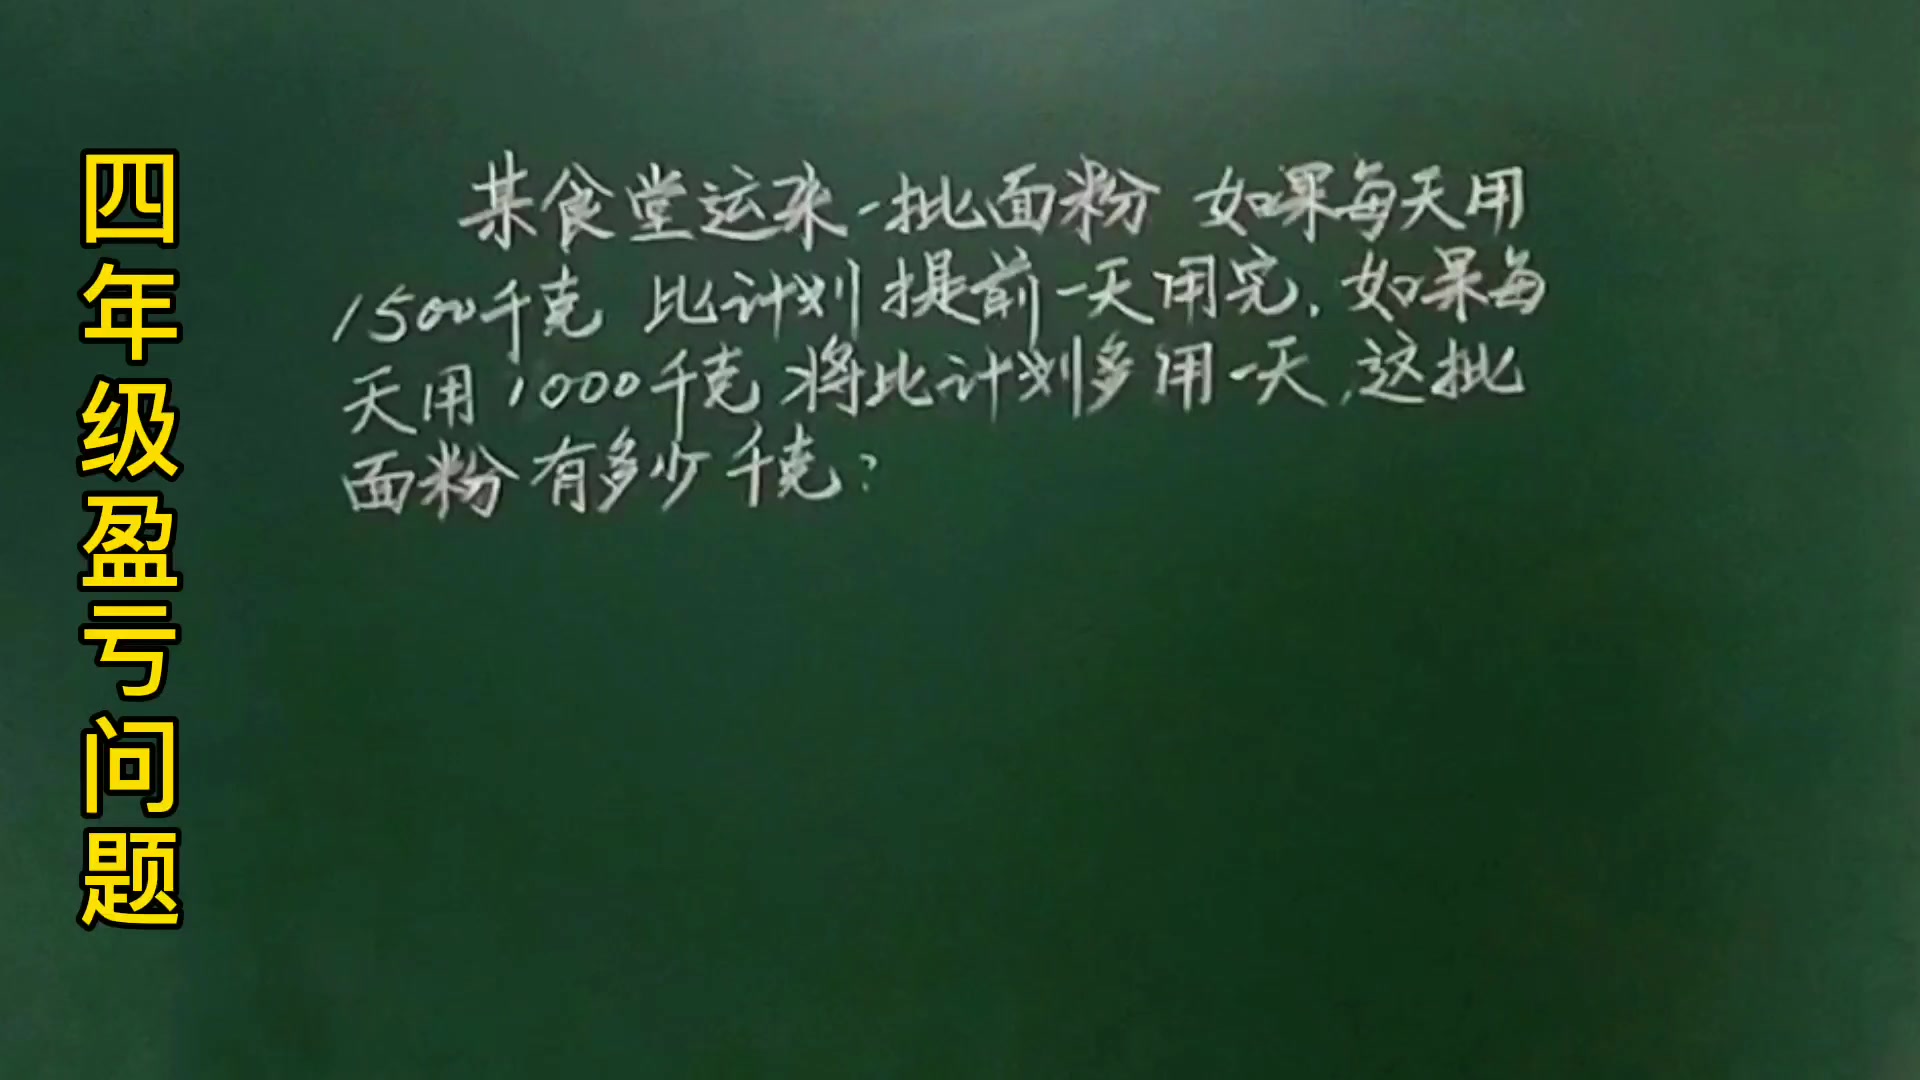 四年级盈亏问题
某食堂运来一批面粉 如果每天用
1500千克 比计划提前一天用完.如果每
天用1000千克 将比计划多用一天.这批
面粉有多少千克?